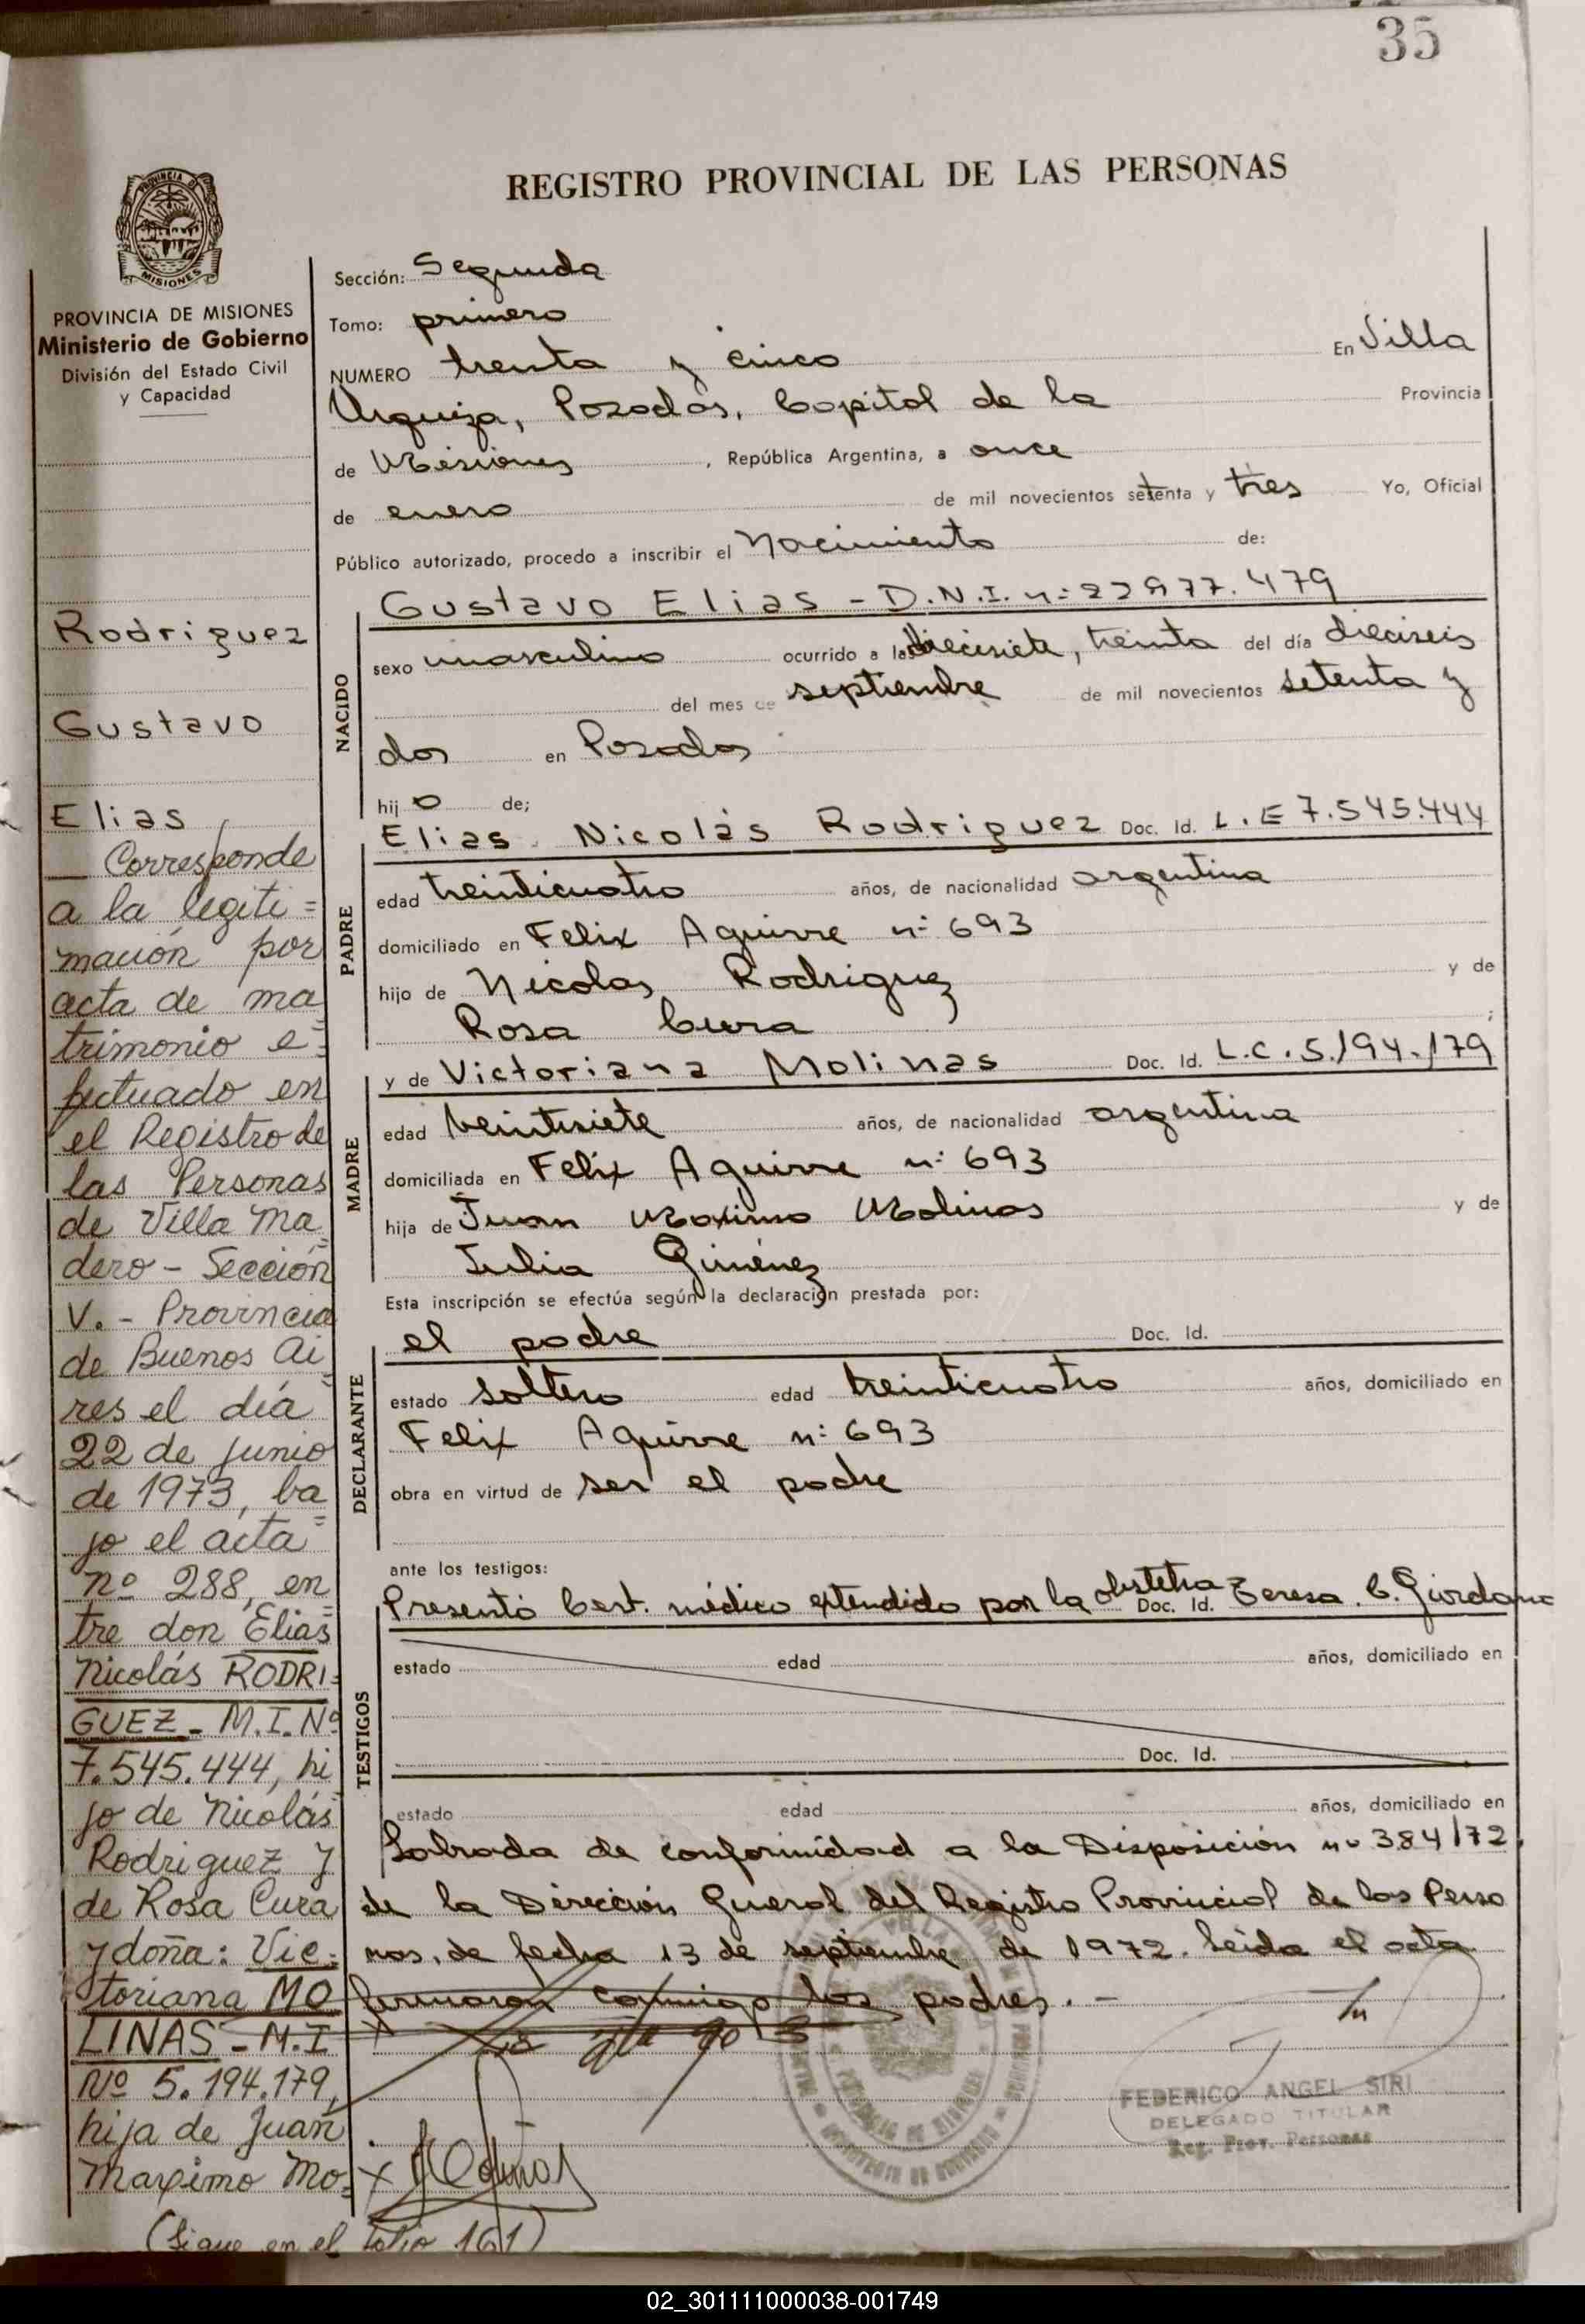 35
REGISTRO PROVINCIAL DE LAS PERSONAS
PROVINCIA DE MISIONES
Ministerio de Gobierno
División del Estado Civil
y Capacidad
Rodriguez
Gustavo
Elias
— Corresponde
a la legiti=
mación por
acta de ma
trimonio e=
fectuado en
el Registro de
las Personas
de Villa Ma=
dero - Sección
V. - Provincia
de Buenos Ai=
res el día
22 de junio
de 1973, ba
jo el acta
nº 288, en
tre don Elias
Nicolás RODRI=
GUEZ - M.I. Nº
7.545.444, hi
jo de Nicolás
Rodriguez y
de Rosa Cura
y doña: Vic=
toriana MO
LINAS - M.I
Nº 5.194.179,
hija de Juan
Maximo Mo=
(Sigue en el folio 161)
Sección: Segunda
Tomo: primero
NUMERO trenta y cinco En Villa
Urquiza, Posadas, Capital de la Provincia
de Misiones, República Argentina, a once
de enero de mil novecientos setenta y tres Yo, Oficial
Público autorizado, procedo a inscribir el Nacimiento de:
NACIDO
Gustavo Elias - D.N.I. nº 22977.479
sexo masculino ocurrido a las diecisiete, treinta del día dieciseis
del mes de septiembre de mil novecientos setenta y
dos en Posadas
hijo de;
PADRE
Elias Nicolás Rodriguez Doc. Id. L.E 7.545.444
edad treinticuatro años, de nacionalidad argentina
domiciliado en Felix Aguirre nº 693
hijo de Nicolas Rodriguez y de
Rosa Cura ;
MADRE
y de Victoriana Molinas Doc. Id. L.C. 5.194.179
edad veintisiete años, de nacionalidad argentina
domiciliada en Felix Aguirre nº 693
hija de Juan Maximo Molinas y de
Julia Giménez
Esta inscripción se efectúa según la declaración prestada por:
DECLARANTE
el padre Doc. Id.
estado soltero edad treinticuatro años, domiciliado en
Felix Aguirre nº 693
obra en virtud de ser el padre
ante los testigos:
TESTIGOS
Presentó Cert. médico extendido por la obstetra Teresa C. Giordano Doc. Id.
estado edad años, domiciliado en
Doc. Id.
estado edad años, domiciliado en
Labrada de conformidad a la Disposición nº 384/72,
de la Dirección General del Registro Provincial de las Perso
nas, de fecha 13 de septiembre de 1972. Leída el acta
firmaron conmigo los padres. -
FEDERICO ANGEL SIRI
DELEGADO TITULAR
Reg. Prov. Personas
02_301111000038-001749